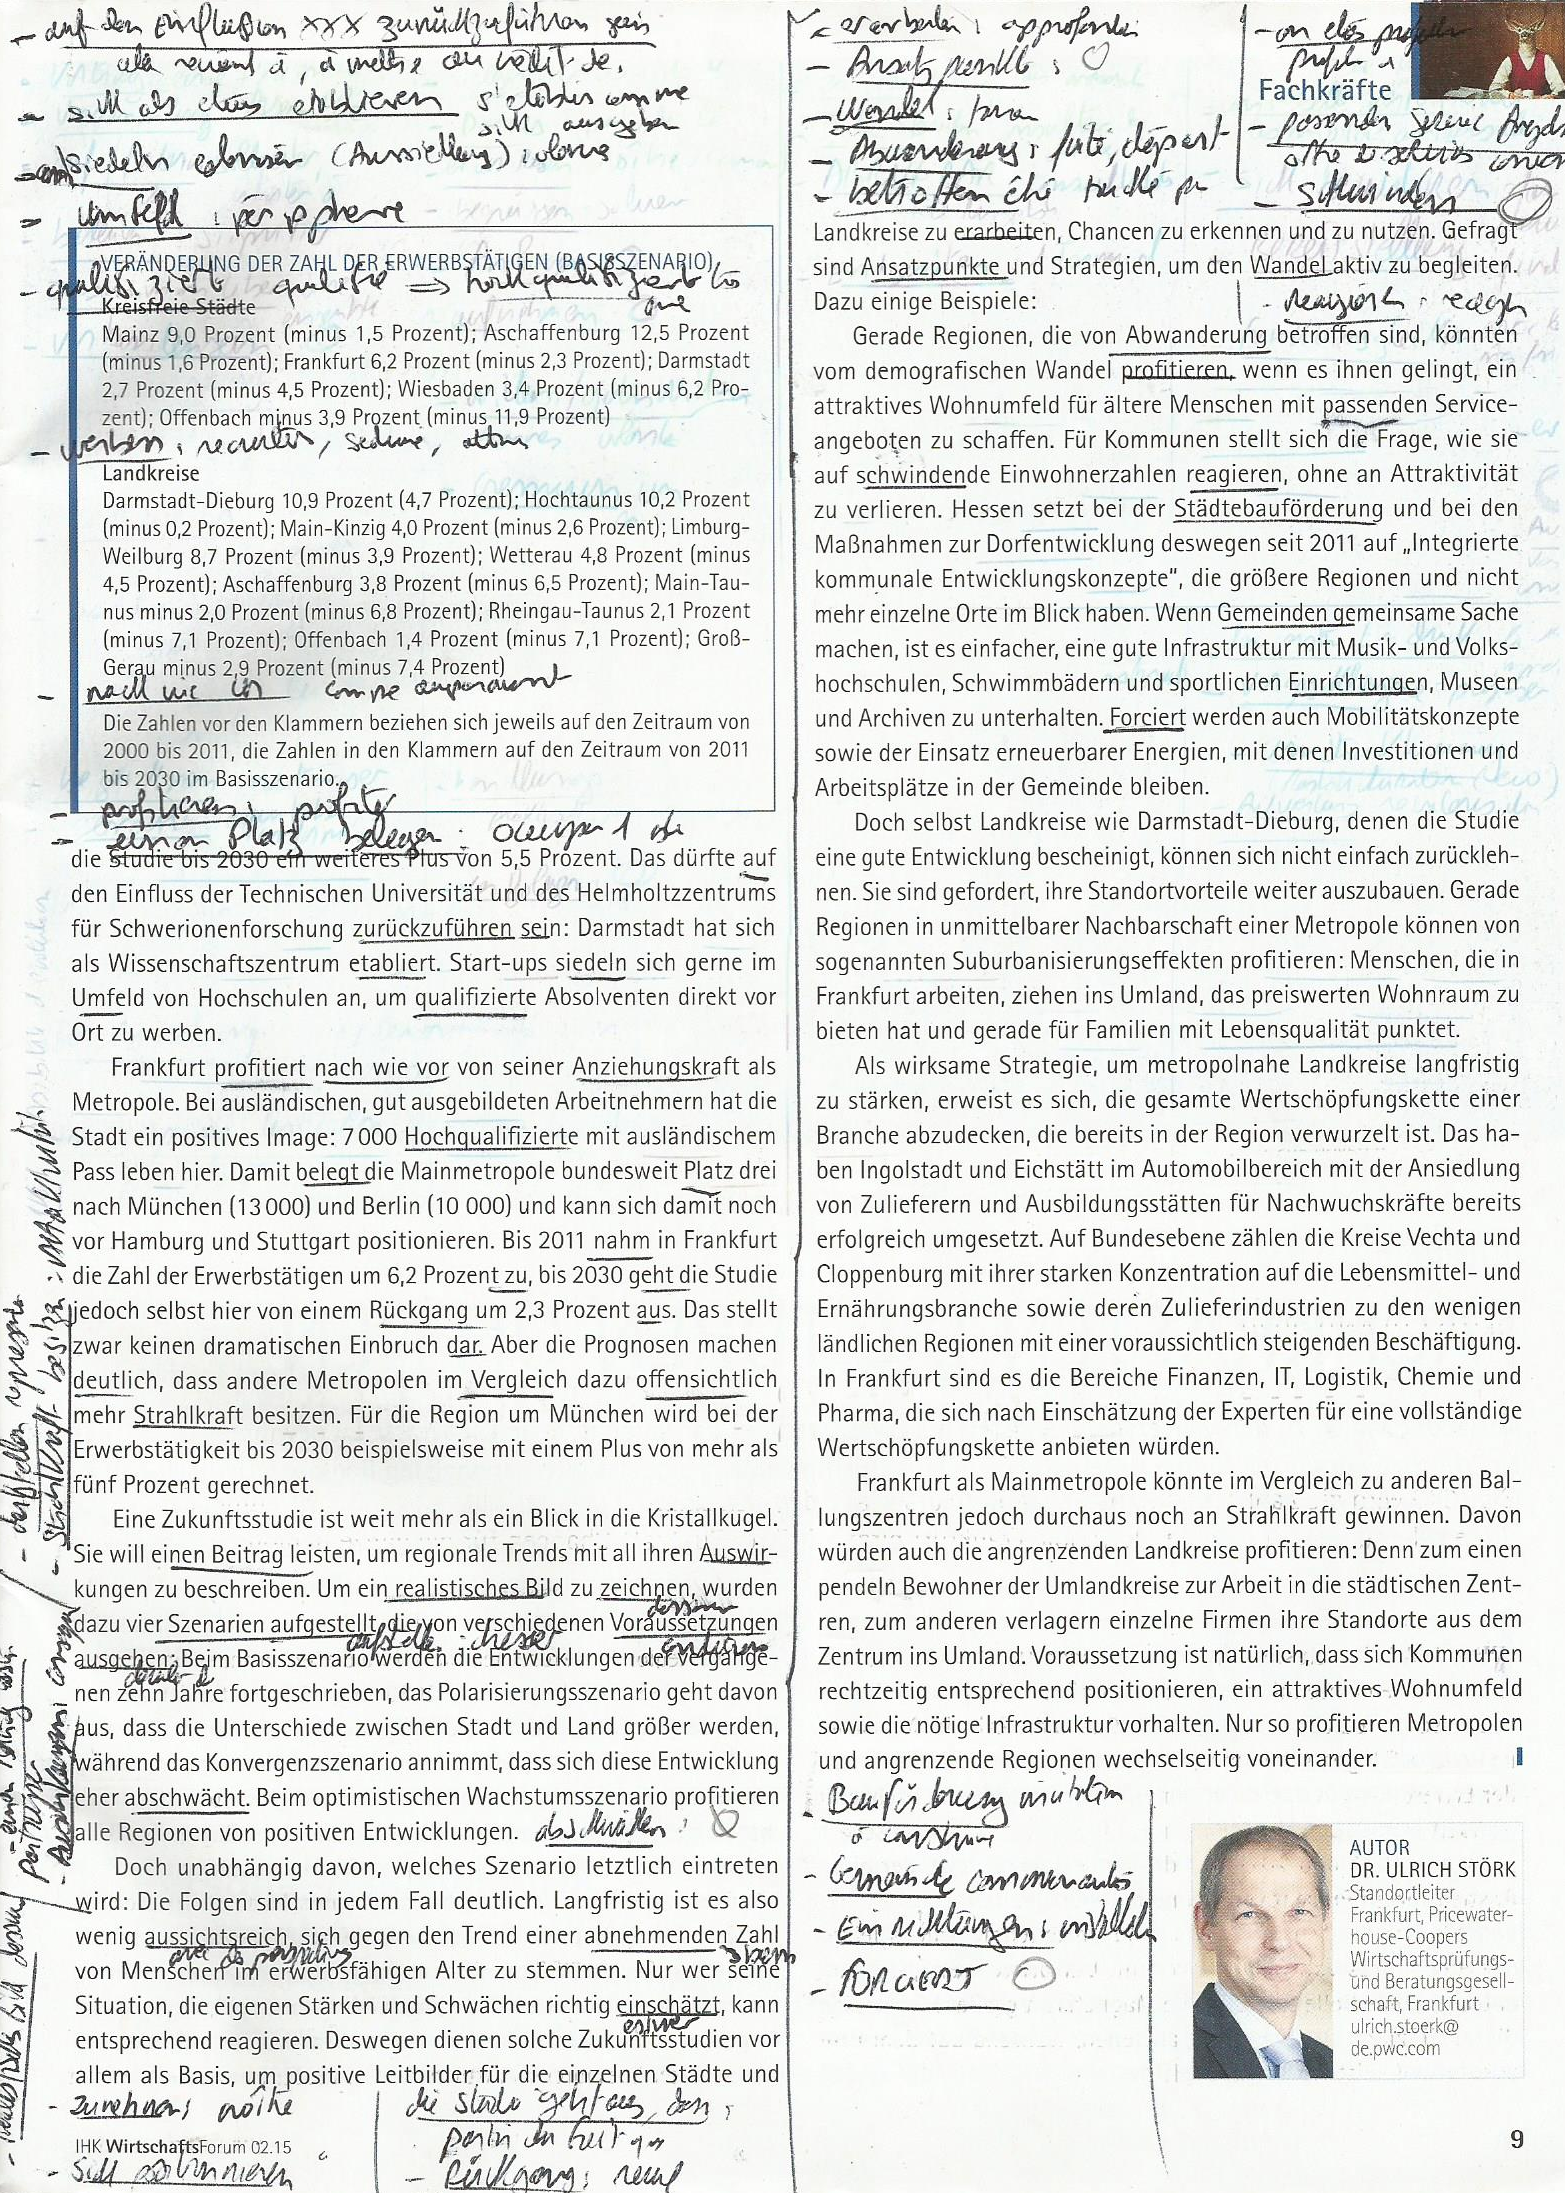 auf den Einfluss von xxx zurückzuführen sein
sich als etwas etablieren
siedeln coloniser
Umfeld : périphérie
erarbeiten : approfondir
Ansatzpunkte :
Wandel :
Abwanderung : fuite, départ
betroffen
Fachkräfte
schwinden
VERÄNDERUNG DER ZAHL DER ERWERBSTÄTIGEN (BASISSZENARIO)
qualifiziert qualifié ⇒ hochqualifiziert
Kreisfreie Städte
Mainz 9,0 Prozent (minus 1,5 Prozent); Aschaffenburg 12,5 Prozent
(minus 1,6 Prozent); Frankfurt 6,2 Prozent (minus 2,3 Prozent); Darmstadt
2,7 Prozent (minus 4,5 Prozent); Wiesbaden 3,4 Prozent (minus 6,2 Pro-
zent); Offenbach minus 3,9 Prozent (minus 11,9 Prozent)
werben : recruter, séduire, attirer
Landkreise
Darmstadt-Dieburg 10,9 Prozent (4,7 Prozent); Hochtaunus 10,2 Prozent
(minus 0,2 Prozent); Main-Kinzig 4,0 Prozent (minus 2,6 Prozent); Limburg-
Weilburg 8,7 Prozent (minus 3,9 Prozent); Wetterau 4,8 Prozent (minus
4,5 Prozent); Aschaffenburg 3,8 Prozent (minus 6,5 Prozent); Main-Tau-
nus minus 2,0 Prozent (minus 6,8 Prozent); Rheingau-Taunus 2,1 Prozent
(minus 7,1 Prozent); Offenbach 1,4 Prozent (minus 7,1 Prozent); Groß-
Gerau minus 2,9 Prozent (minus 7,4 Prozent)
nach wie vor comme auparavant
Die Zahlen vor den Klammern beziehen sich jeweils auf den Zeitraum von
2000 bis 2011, die Zahlen in den Klammern auf den Zeitraum von 2011
bis 2030 im Basisszenario.
profitieren : profiter
einen Platz belegen : occuper
die Studie bis 2030 ein weiteres Plus von 5,5 Prozent. Das dürfte auf
den Einfluss der Technischen Universität und des Helmholtzzentrums
für Schwerionenforschung zurückzuführen sein: Darmstadt hat sich
als Wissenschaftszentrum etabliert. Start-ups siedeln sich gerne im
Umfeld von Hochschulen an, um qualifizierte Absolventen direkt vor
Ort zu werben.
Frankfurt profitiert nach wie vor von seiner Anziehungskraft als
Metropole. Bei ausländischen, gut ausgebildeten Arbeitnehmern hat die
Stadt ein positives Image: 7 000 Hochqualifizierte mit ausländischem
Pass leben hier. Damit belegt die Mainmetropole bundesweit Platz drei
nach München (13 000) und Berlin (10 000) und kann sich damit noch
vor Hamburg und Stuttgart positionieren. Bis 2011 nahm in Frankfurt
die Zahl der Erwerbstätigen um 6,2 Prozent zu, bis 2030 geht die Studie
jedoch selbst hier von einem Rückgang um 2,3 Prozent aus. Das stellt
zwar keinen dramatischen Einbruch dar. Aber die Prognosen machen
deutlich, dass andere Metropolen im Vergleich dazu offensichtlich
mehr Strahlkraft besitzen. Für die Region um München wird bei der
Erwerbstätigkeit bis 2030 beispielsweise mit einem Plus von mehr als
fünf Prozent gerechnet.
Eine Zukunftsstudie ist weit mehr als ein Blick in die Kristallkugel.
Sie will einen Beitrag leisten, um regionale Trends mit all ihren Auswir-
kungen zu beschreiben. Um ein realistisches Bild zu zeichnen, wurden
dazu vier Szenarien aufgestellt, die von verschiedenen Voraussetzungen
ausgehen: Beim Basisszenario werden die Entwicklungen der vergange-
nen zehn Jahre fortgeschrieben, das Polarisierungsszenario geht davon
aus, dass die Unterschiede zwischen Stadt und Land größer werden,
während das Konvergenzszenario annimmt, dass sich diese Entwicklung
eher abschwächt. Beim optimistischen Wachstumsszenario profitieren
alle Regionen von positiven Entwicklungen.
Doch unabhängig davon, welches Szenario letztlich eintreten
wird: Die Folgen sind in jedem Fall deutlich. Langfristig ist es also
wenig aussichtsreich, sich gegen den Trend einer abnehmenden Zahl
von Menschen im erwerbsfähigen Alter zu stemmen. Nur wer seine
Situation, die eigenen Stärken und Schwächen richtig einschätzt, kann
entsprechend reagieren. Deswegen dienen solche Zukunftsstudien vor
allem als Basis, um positive Leitbilder für die einzelnen Städte und
zunehmen : croître
die Studie geht aus, dass
IHK WirtschaftsForum 02.15
sich positionieren
Rückgang : recul
Landkreise zu erarbeiten, Chancen zu erkennen und zu nutzen. Gefragt
sind Ansatzpunkte und Strategien, um den Wandel aktiv zu begleiten.
Dazu einige Beispiele:
reagieren : réagir
Gerade Regionen, die von Abwanderung betroffen sind, könnten
vom demografischen Wandel profitieren, wenn es ihnen gelingt, ein
attraktives Wohnumfeld für ältere Menschen mit passenden Service-
angeboten zu schaffen. Für Kommunen stellt sich die Frage, wie sie
auf schwindende Einwohnerzahlen reagieren, ohne an Attraktivität
zu verlieren. Hessen setzt bei der Städtebauförderung und bei den
Maßnahmen zur Dorfentwicklung deswegen seit 2011 auf „Integrierte
kommunale Entwicklungskonzepte“, die größere Regionen und nicht
mehr einzelne Orte im Blick haben. Wenn Gemeinden gemeinsame Sache
machen, ist es einfacher, eine gute Infrastruktur mit Musik- und Volks-
hochschulen, Schwimmbädern und sportlichen Einrichtungen, Museen
und Archiven zu unterhalten. Forciert werden auch Mobilitätskonzepte
sowie der Einsatz erneuerbarer Energien, mit denen Investitionen und
Arbeitsplätze in der Gemeinde bleiben.
Doch selbst Landkreise wie Darmstadt-Dieburg, denen die Studie
eine gute Entwicklung bescheinigt, können sich nicht einfach zurückleh-
nen. Sie sind gefordert, ihre Standortvorteile weiter auszubauen. Gerade
Regionen in unmittelbarer Nachbarschaft einer Metropole können von
sogenannten Suburbanisierungseffekten profitieren: Menschen, die in
Frankfurt arbeiten, ziehen ins Umland, das preiswerten Wohnraum zu
bieten hat und gerade für Familien mit Lebensqualität punktet.
Als wirksame Strategie, um metropolnahe Landkreise langfristig
zu stärken, erweist es sich, die gesamte Wertschöpfungskette einer
Branche abzudecken, die bereits in der Region verwurzelt ist. Das ha-
ben Ingolstadt und Eichstätt im Automobilbereich mit der Ansiedlung
von Zulieferern und Ausbildungsstätten für Nachwuchskräfte bereits
erfolgreich umgesetzt. Auf Bundesebene zählen die Kreise Vechta und
Cloppenburg mit ihrer starken Konzentration auf die Lebensmittel- und
Ernährungsbranche sowie deren Zulieferindustrien zu den wenigen
ländlichen Regionen mit einer voraussichtlich steigenden Beschäftigung.
In Frankfurt sind es die Bereiche Finanzen, IT, Logistik, Chemie und
Pharma, die sich nach Einschätzung der Experten für eine vollständige
Wertschöpfungskette anbieten würden.
Frankfurt als Mainmetropole könnte im Vergleich zu anderen Bal-
lungszentren jedoch durchaus noch an Strahlkraft gewinnen. Davon
würden auch die angrenzenden Landkreise profitieren: Denn zum einen
pendeln Bewohner der Umlandkreise zur Arbeit in die städtischen Zent-
ren, zum anderen verlagern einzelne Firmen ihre Standorte aus dem
Zentrum ins Umland. Voraussetzung ist natürlich, dass sich Kommunen
rechtzeitig entsprechend positionieren, ein attraktives Wohnumfeld
sowie die nötige Infrastruktur vorhalten. Nur so profitieren Metropolen
und angrenzende Regionen wechselseitig voneinander.
Bauförderung
Gemeinde
Einrichtungen :
FORCIERT
AUTOR
DR. ULRICH STÖRK
Standortleiter
Frankfurt, Pricewater-
house-Coopers
Wirtschaftsprüfungs-
und Beratungsgesell-
schaft, Frankfurt
ulrich.stoerk@
de.pwc.com
9